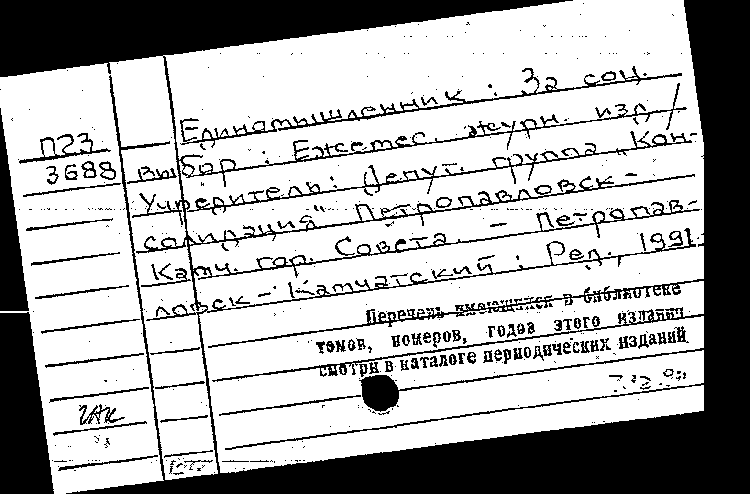 П23
3688
Единомышленник : За соц.
выбор : Ежемес. журн. изд /
Учредитель: Депут. группа „Кон-
солидация" Петропавловск-
Камч. гор. Совета. - Петропав-
ловск-Камчатский : Ред., 1991-
Перечень имеющихся в библиотеке
томов, номеров, годов этого издания
смотри в каталоге периодических изданий